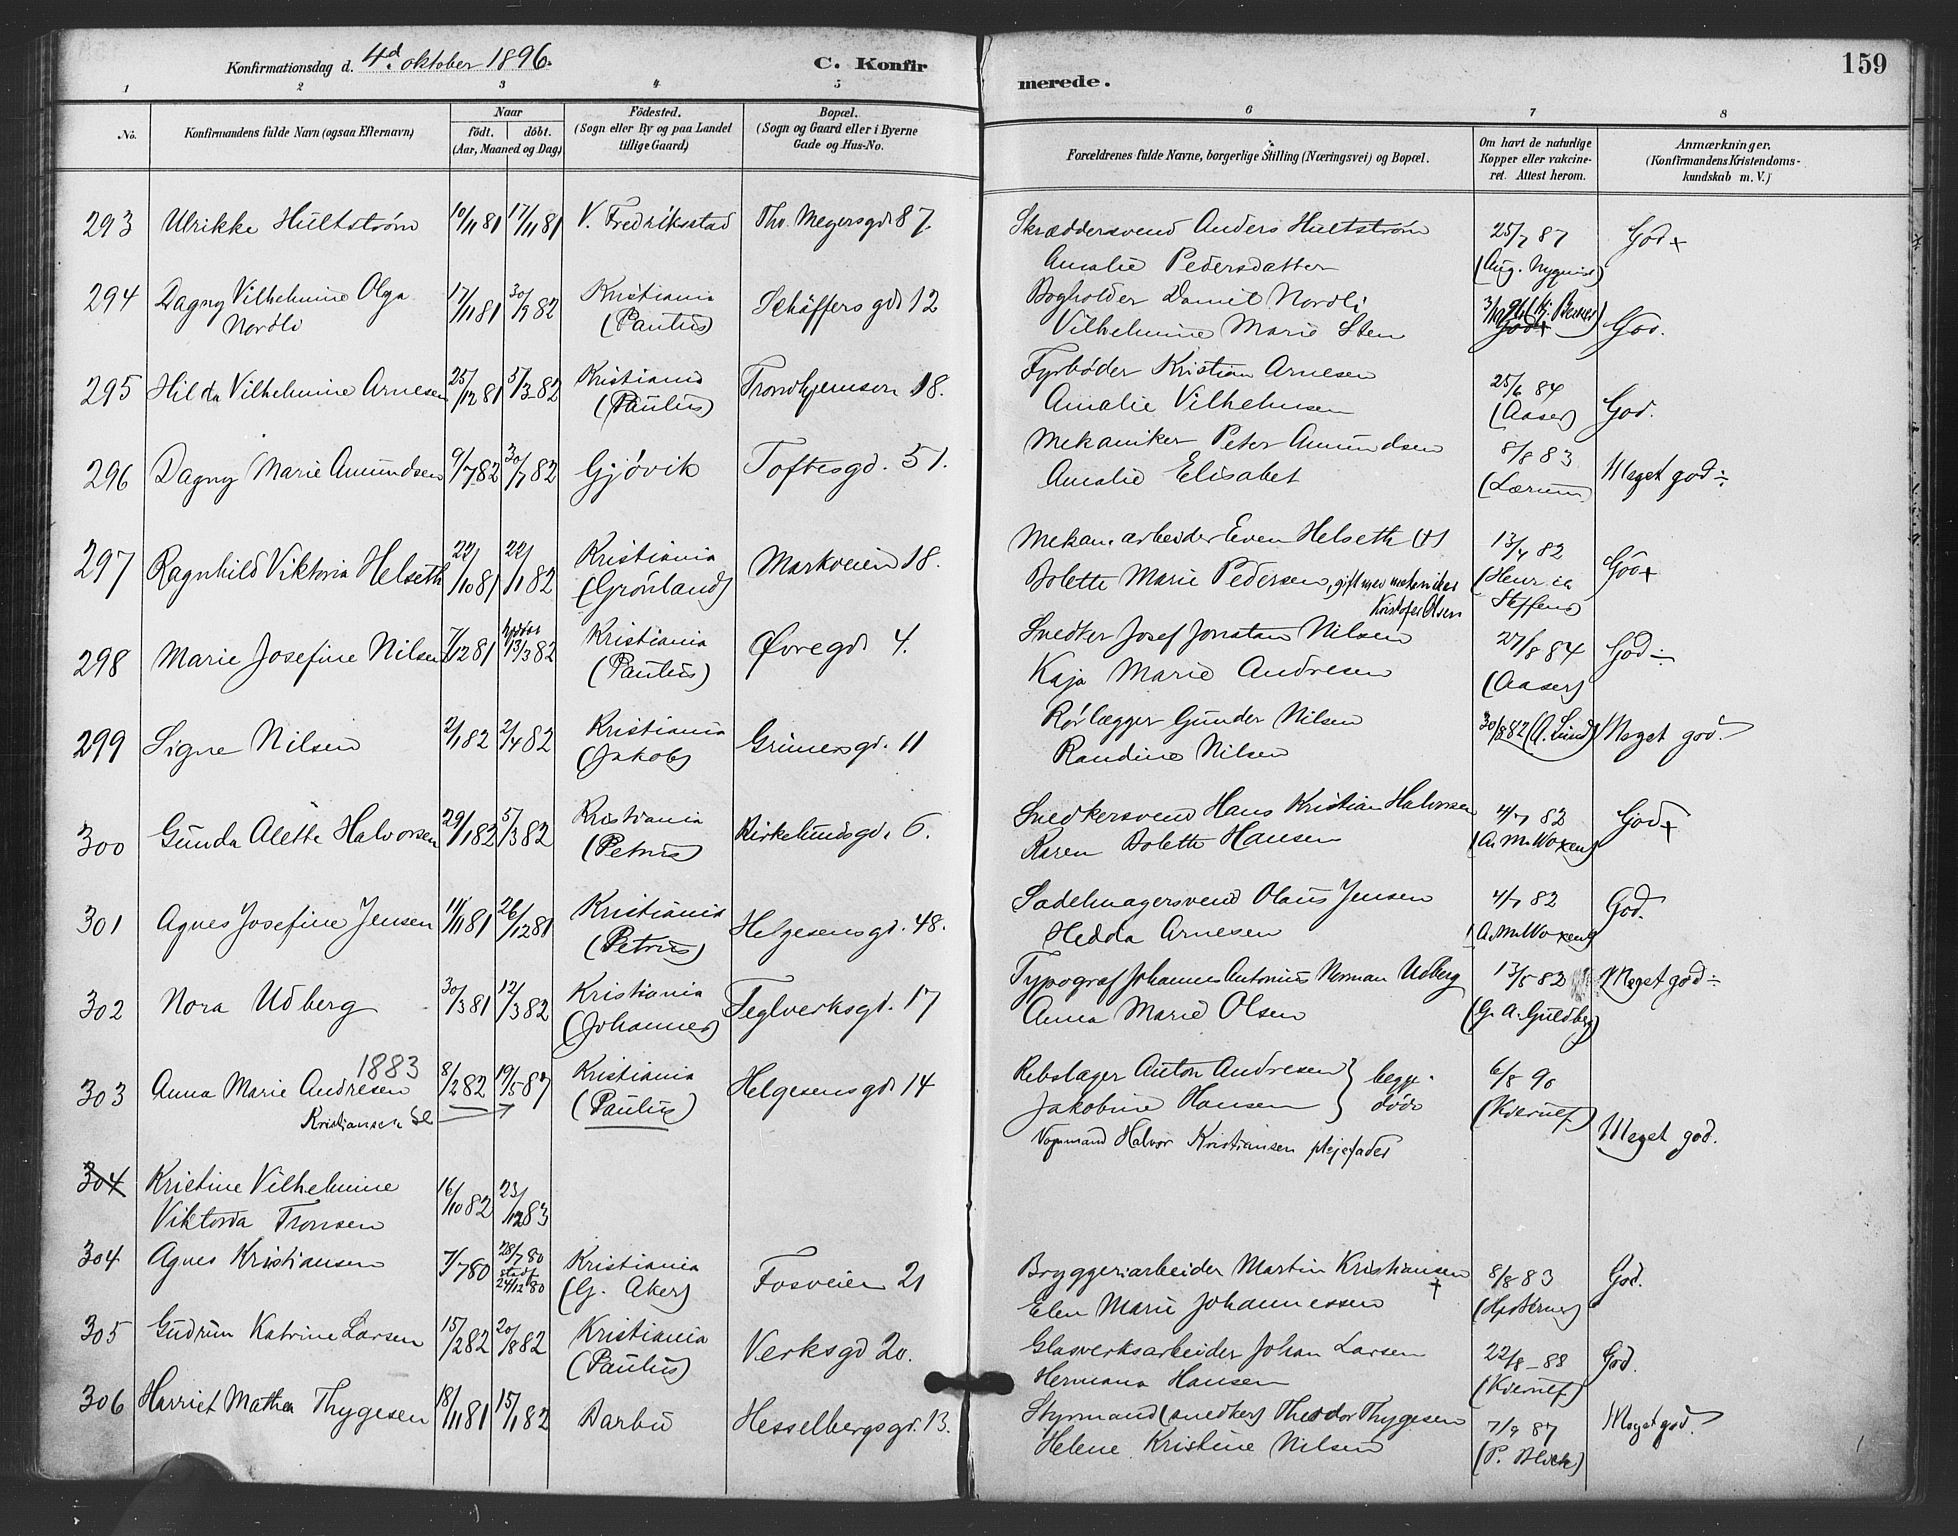 Konfirmationsdag d. 4d. oktober 1896. C. Konfirmerede. 159
1 2 3 4 5 6 7 8
No. Konfirmandens fulde Navn (ogsaa Efternavn) Naar født. døbt. (Aar, Maaned og Dag) Fødested. (Sogn eller By og paa Landet tillige Gaard) Bopæl. (Sogn og Gaard eller i Byerne Gade og Hus-No. Forældrenes fulde Navne, borgerlige Stilling (Næringsvei) og Bopæl. Om havt de naturlige Kopper eller vakcineret. Attest herom. Anmærkninger. (Konfirmandens Kristendomskundskab m. V.)
293 Ulrikke Hultstrøm 10/11 81 17/11 81 V. Fredriksstad Th. Meyersgd. 87. Skræddersvend Anders Hultstrøm 25/7 87 God +
Amalie Pedersdatter (Aug. Nyquist)
294 Dagny Vilhelmine Olga 17/11 81 Kristiania Schäffersgd. 12 Bogholder Daniel Nordli
Nordli (Paulus) Vilhelmine Marie Sten God.
295 Hilda Vilhelmine Arnesen 25/12 81 5/3 82 Kristiania Trondhjemsvn 18. Fyrbøder Kristian Arnesen 25/6 84 God.
(Paulus) Amalie Vilhelmsen (Aaser)
296 Dagny Marie Amundsen 9/7 82 30/7 82 Gjøvik Toftesgd. 51. Mekaniker Peter Amundsen 8/8 83 Meget god ÷
Amalie Elisabet (Lærum)
297 Ragnhild Viktoria Helseth 22/10 81 22/1 82 Kristiania Markveien 18. Mekan. arbeider Even Helseth (+) 13/4 82 God +
(Grønland) Bolette Marie Pedersen, gift med mekaniker (Henr.
Kristofer Olsen Steffens)
298 Marie Josefine Nilsen 7/12 81 hjdøbt 13/3 82 Kristiania Øvregd. 4. Snedker Josef Jonatan Nilsen 27/8 84 God ÷
(Paulus) Kaja Marie Andresen (Aaser)
299 Signe Nilsen 2/1 82 2/4 82 Kristiania Grünersgd. 11 Rørlægger Gunder Nilsen 30/8 82 (A. Lund) Meget god.
(Jakob) Randine Nilsen
300 Gunda Alette Halvorsen 29/1 82 5/3 82 Kristiania Birkelundsgd. 6. Snedkersvend Hans Kristian Halvorsen 4/7 82 God +
(Petrus) Karen Bolette Hansen (A. M. Woxen)
301 Agnes Josefine Jensen 11/11 81 26/12 81 Kristiania Helgesensgd. 48. Sadelmagersvend Olaus Jensen 4/7 82 God.
(Petrus) Hedda Arnesen (A. M. Woxen)
302 Nora Udberg 30/3 81 12/3 82 Kristiania Teglverksgd. 17 Typograf Johannes Antonius Norman Udberg 13/5 82 Meget god ÷
(Johannes) Anna Marie Olsen (G. A. Guldberg)
1883
303 Anna Marie Andresen 8/2 82 19/5 87 Kristiania Helgesensgd. 14 Rebslager Anton Andresen } begge 6/8 90
Kristiansen (Paulus) Jakobine Hansen } døde (Kierulf)
Vognmand Halvor Kristiansen plejefader Meget god.
304 Kristine Vilhelmine 16/10 82 23/12 83
Viktoria Tronsen
304 Agnes Kristiansen 7/7 80 28/7 80 stadf. 24/12 80 Kristiania Fosveien 21 Bryggeriarbeider Martin Kristiansen 8/8 83 God.
(G. Aker) Elen Marie Johannessen +
305 Gudrun Katrine Larsen 15/2 82 20/8 82 Kristiania Verksgd 20. Glasverksarbeider Johan Larsen 22/8 - 88 God.
(Paulus) Hermana Hansen (Kierulf)
306 Harriet Mathea Thygesen 18/11 81 15/1 82 Barbu Hesselbergsgd. 13. Styrmand (snedker) Theodor Thygesen 7/9 87 Meget god.
Helene Kristine Nilsen (P. Blick)